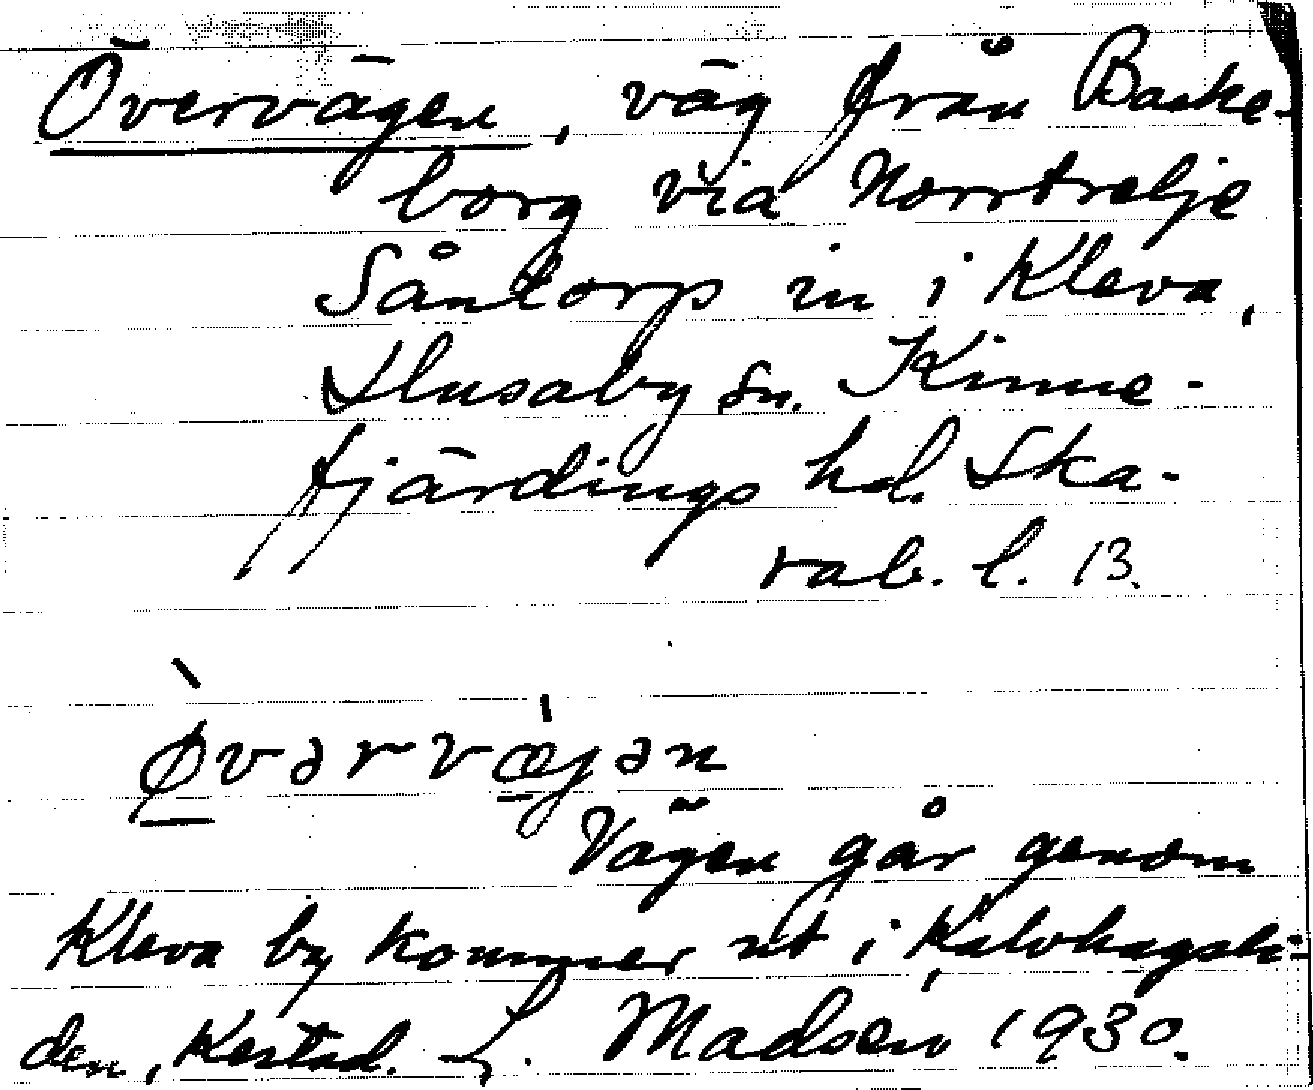 Övervägen, väg från Backe-
borg via Norrtrelje
Såntorp in i Kleva,
Husaby sn. Kinne-
fjärdings hd. Ska-
rab. l. 13.
øvərvæjən
Vägen går genom
Kleva by kommer ut i Kalvhagsli-
den, Kestad. L. Madsen 1930.